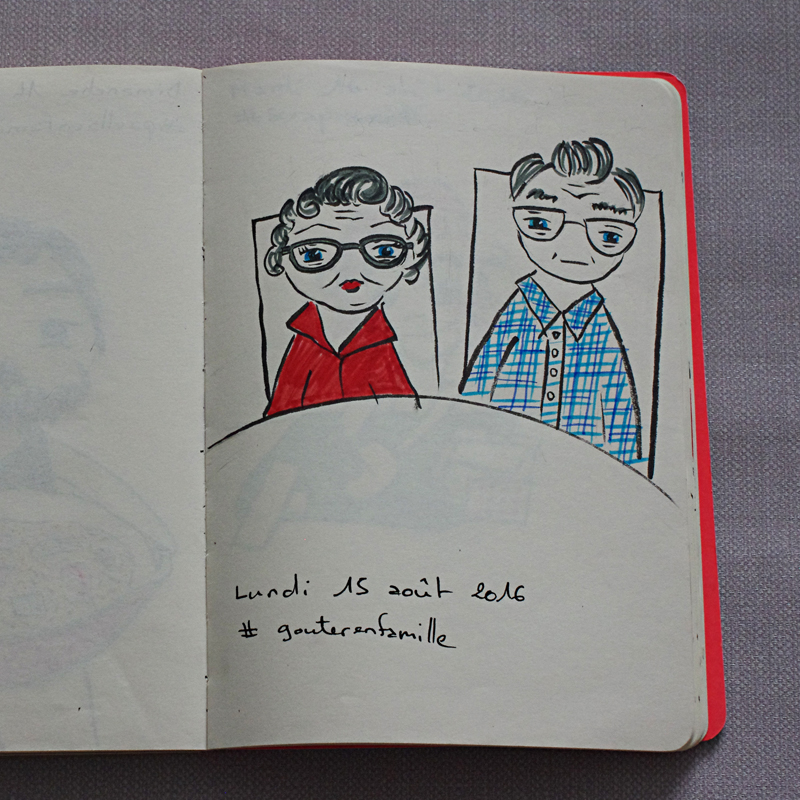 Lundi 15 août 2016
# gouterenfamille